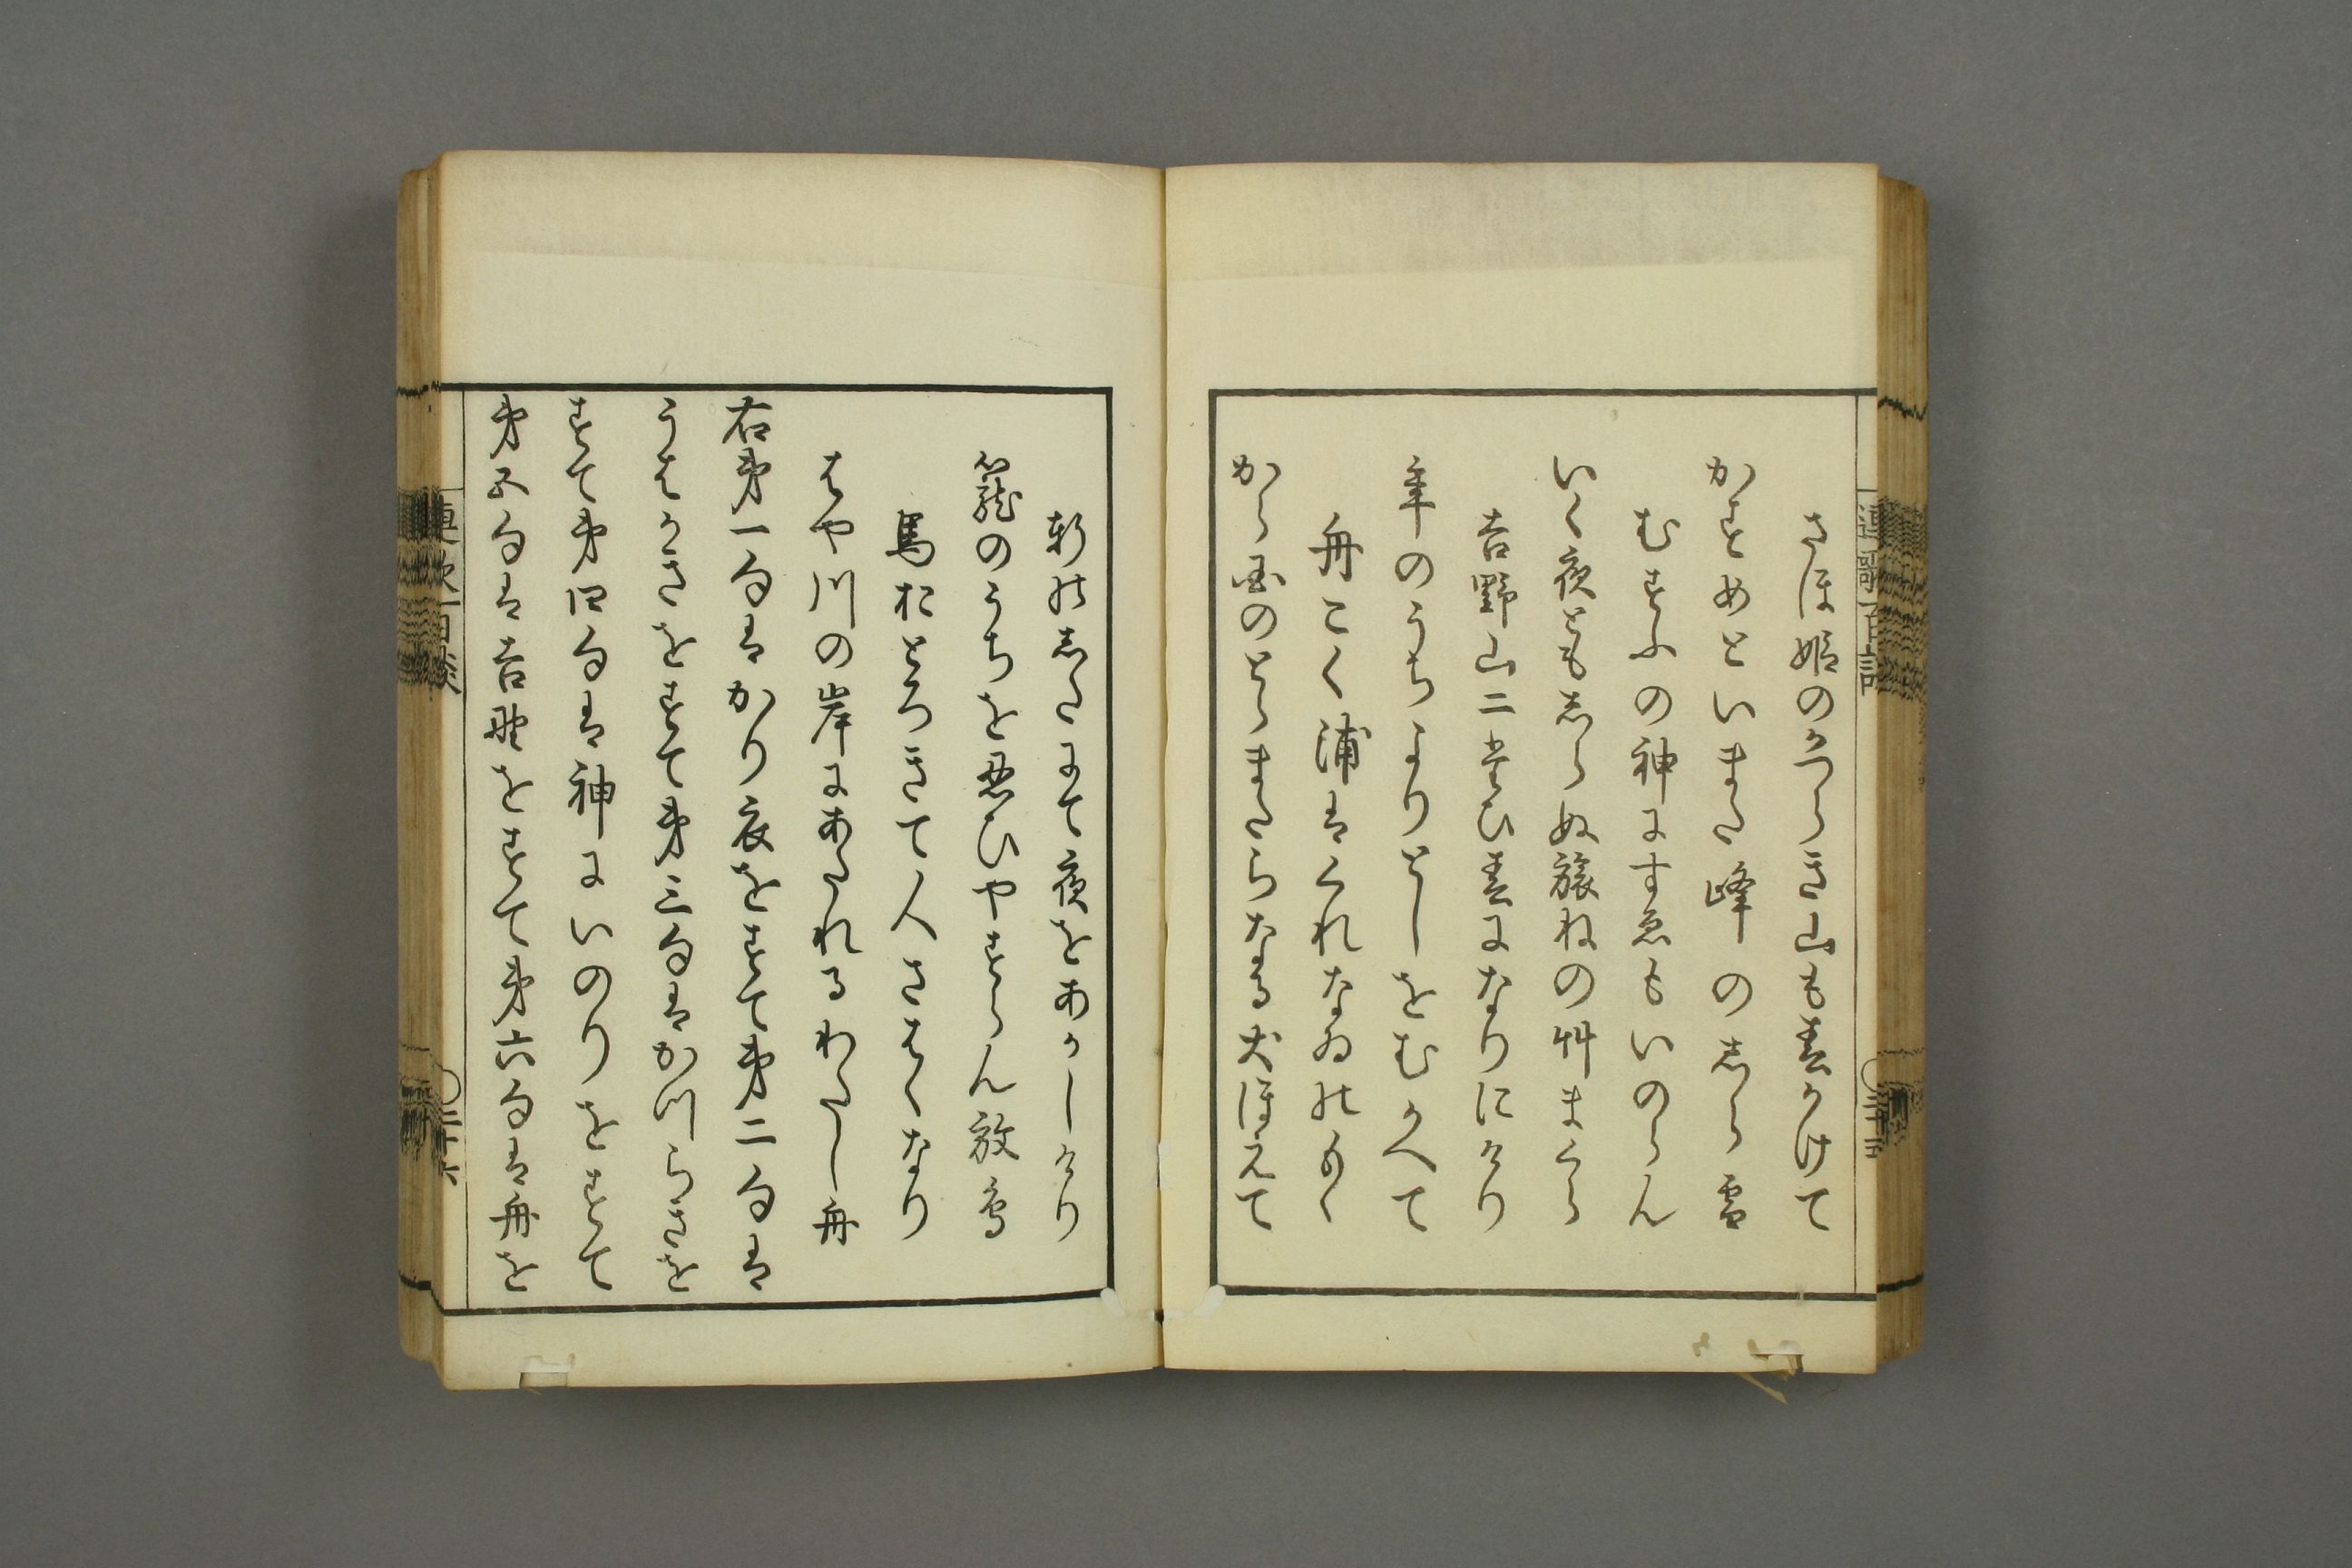 さほ姫のかつらき山も春かけて
かすめといまた峰のしら雪
むすふの神にすゑもいのらん
いく夜ともしらぬ旅ねの草まくら
吉野山二たひ春になりにけり
年のうちよりとしをむかへて
舟こく浦はくれなゐのもゝ
から国のとらまたらなる犬ほえて
軒のしたにて夜をあかしけり
籠のうちを思ひやすらん放鳥
馬おとろきて人さはくなり
はや川の岸にあたれるわたし舟
右第一句はかり衣をすて第二句は
うはかさをすて第三句はかつらきを
すて第四句は神にいのりをすて
第五句は吉野をすて第六句は舟を
連歌百談
○三十五
連歌百談
○三十六